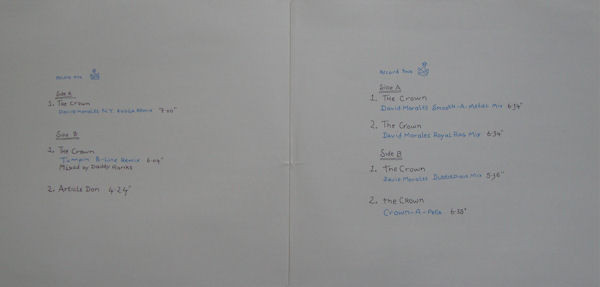 Record One
Side A
1. The Crown
David Morales N.Y. Ragga Remix 7·00"
Side B
1. The Crown
Jumpin B-Line Remix 6·04"
Mixed by Daddy Ranks
2. Article Don 4·24"
Record Two
Side A
1. The Crown
David Morales Smooth-A-Medic Mix 6·54"
2. The Crown
David Morales Royal Rag Mix 6·34"
Side B
1. The Crown
David Morales Mix 5·36"
2. the Crown
Crown-A-Pella 6·35"